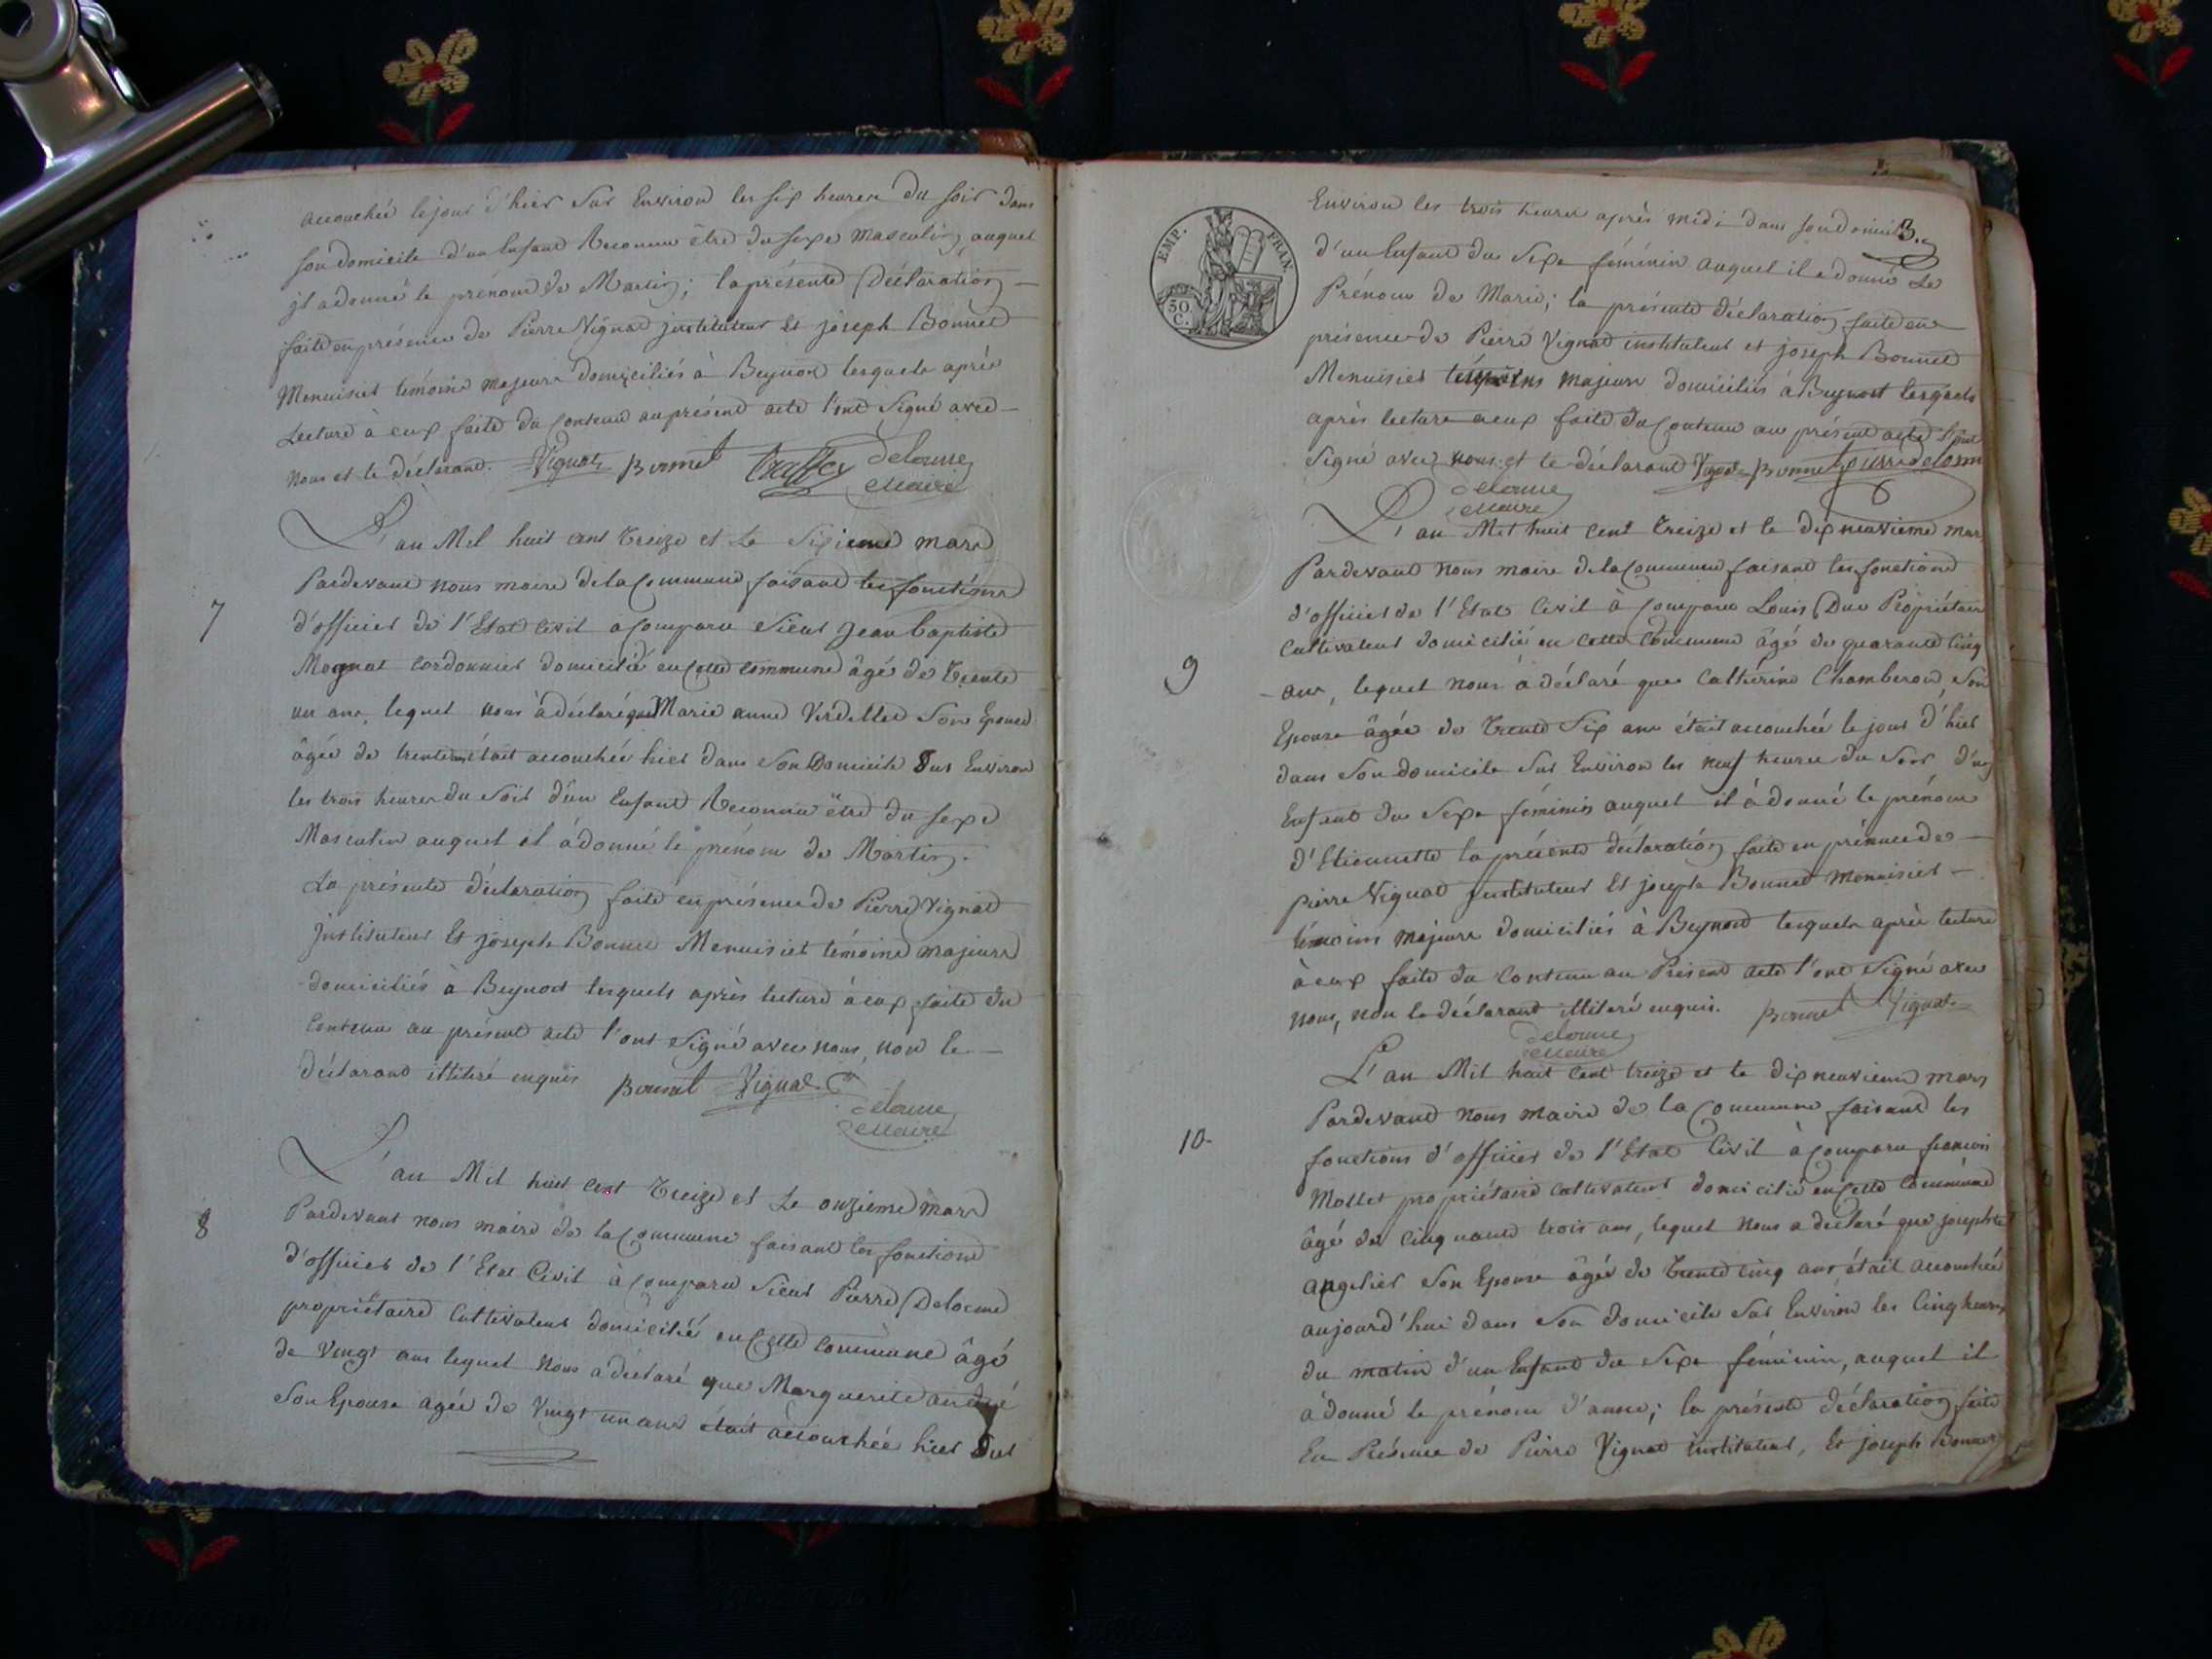 accouchée le jour d'hier sur Environ les six heures du soir dans
son domicile d'un Enfant Reconnu être du sexe masculin, auquel
il a donné le prénom de Martin; la présente Déclaration
faite en présence de Pierre Vignat instituteur Et joseph Bonnet
Menuisier témoins majeurs domiciliés à Beynost lesquels après
Lecture à eux faite du Contenu au présent acte l'ont Signé avec
nous et le déclarant. Vignat Bonnet Delorme
Maire
7
L'an Mil huit cent treize et Le Sixieme mars
Pardevant nous maire de la Commune faisant les fonctions
d'officier de l'Etat Civil a Comparu Sieur Jean baptiste
Mognat Cordonnier domicilié en Cette Commune âgé de trente
un ans, lequel nous à déclaré que Marie anne Son Epouse
âgée de trente ans était accouchée hier dans Son Domicile Sur Environ
les trois heures du Soir d'un Enfant Reconnu être du sexe
Masculin auquel il à donné le prénom de Martin.
La présente déclaration faite en présence de Pierre Vignat
Instituteur Et joseph Bonnet Menuisier témoins majeurs
domiciliés à Beynost lesquels après lecture à eux faite du
Contenu au présent acte l'ont Signé avec nous, non le
déclarant illitéré enquis Bonnet Vignat
Delorme
Maire
8
L'an Mil huit cent treize et Le onzième mars
Pardevant nous maire de la Commune faisant les fonctions
d'officier de l'Etat Civil à Comparu Sieur Pierre Delorme
propriétaire Cultivateur domicilié en Cette Commune âgé
de Vingt ans lequel Nous a déclaré que Marguerite
Son Epouse agée de Vingt un ans était accouchée hier Sur
3.
EMP. FRAN.
50
C.
Environ les trois heures après midi dans son domicile
d'un Enfant du Sexe féminin auquel il a donné Le
Prénom de Marie; la présente déclaration faite en
présence de Pierre Vignat instituteur et joseph Bonnet
Menuisier témoins majeurs domiciliés à Beynost lesquels
après lecture a eux faite du Contenu au présent acte l'ont
Signé avec nous et le déclarant Vignat Bonnet pierre delorme
Delorme
Maire
9
L'an Mil huit Cent treize et le dix neuvieme mars
Pardevant nous maire de la Commune faisant les fonctions
d'officier de l'Etat Civil à Comparu Louis Duc Propriétaire
Cultivateur domicilié en Cette Commune âgé de quarante Cinq
ans, lequel nous à déclaré que Cathérine Chamberon, Son
Epouse âgée de trente Six ans était accouchée le jour d'hier
dans Son domicile Sur Environ les neuf heures du Soir d'un
Enfant du Sexe féminin auquel il à donné le prénom
d'Etiennette la présente déclaration faite en présence de
pierre Vignat Instituteur Et joseph Bonnet Menuisier
témoins majeurs domiciliés à Beynost lesquels après lecture
à eux faite du Contenu au Présent acte l'ont Signé avec
nous, non le déclarant illiteré enquis. Bonnet Vignat
Delorme
Maire
10
L'an Mil huit Cent treize et le dix neuvieme mars
Pardevant nous maire de la Commune faisant les
fonctions d'officier de l'Etat Civil à Comparu francois
Mollet propriétaire cultivateur domicilié en Cette Commune
âgé de Cinquante trois ans, lequel nous a déclaré que josephte
angelier Son Epouse âgée de trente cinq ans était accouchée
aujourd'hui dans Son domicile Sur Environ les Cinq heures
du matin d'un Enfant du Sexe féminin, auquel il
à donné le prénom d'anne; la présente déclaration faite
En Présence de Pierre Vignat instituteur, Et joseph Bonnet